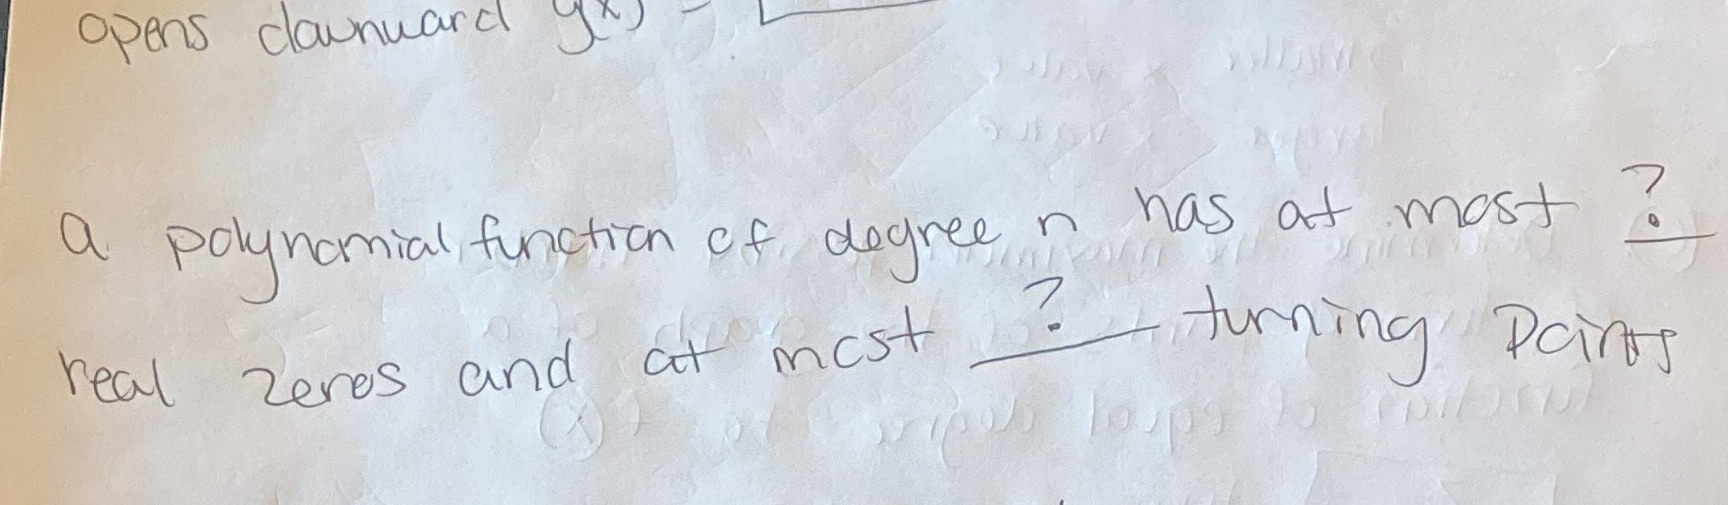 opens downward g(x) =
a polynomial function of degree n has at most ?
real zeros and at most ? turning points